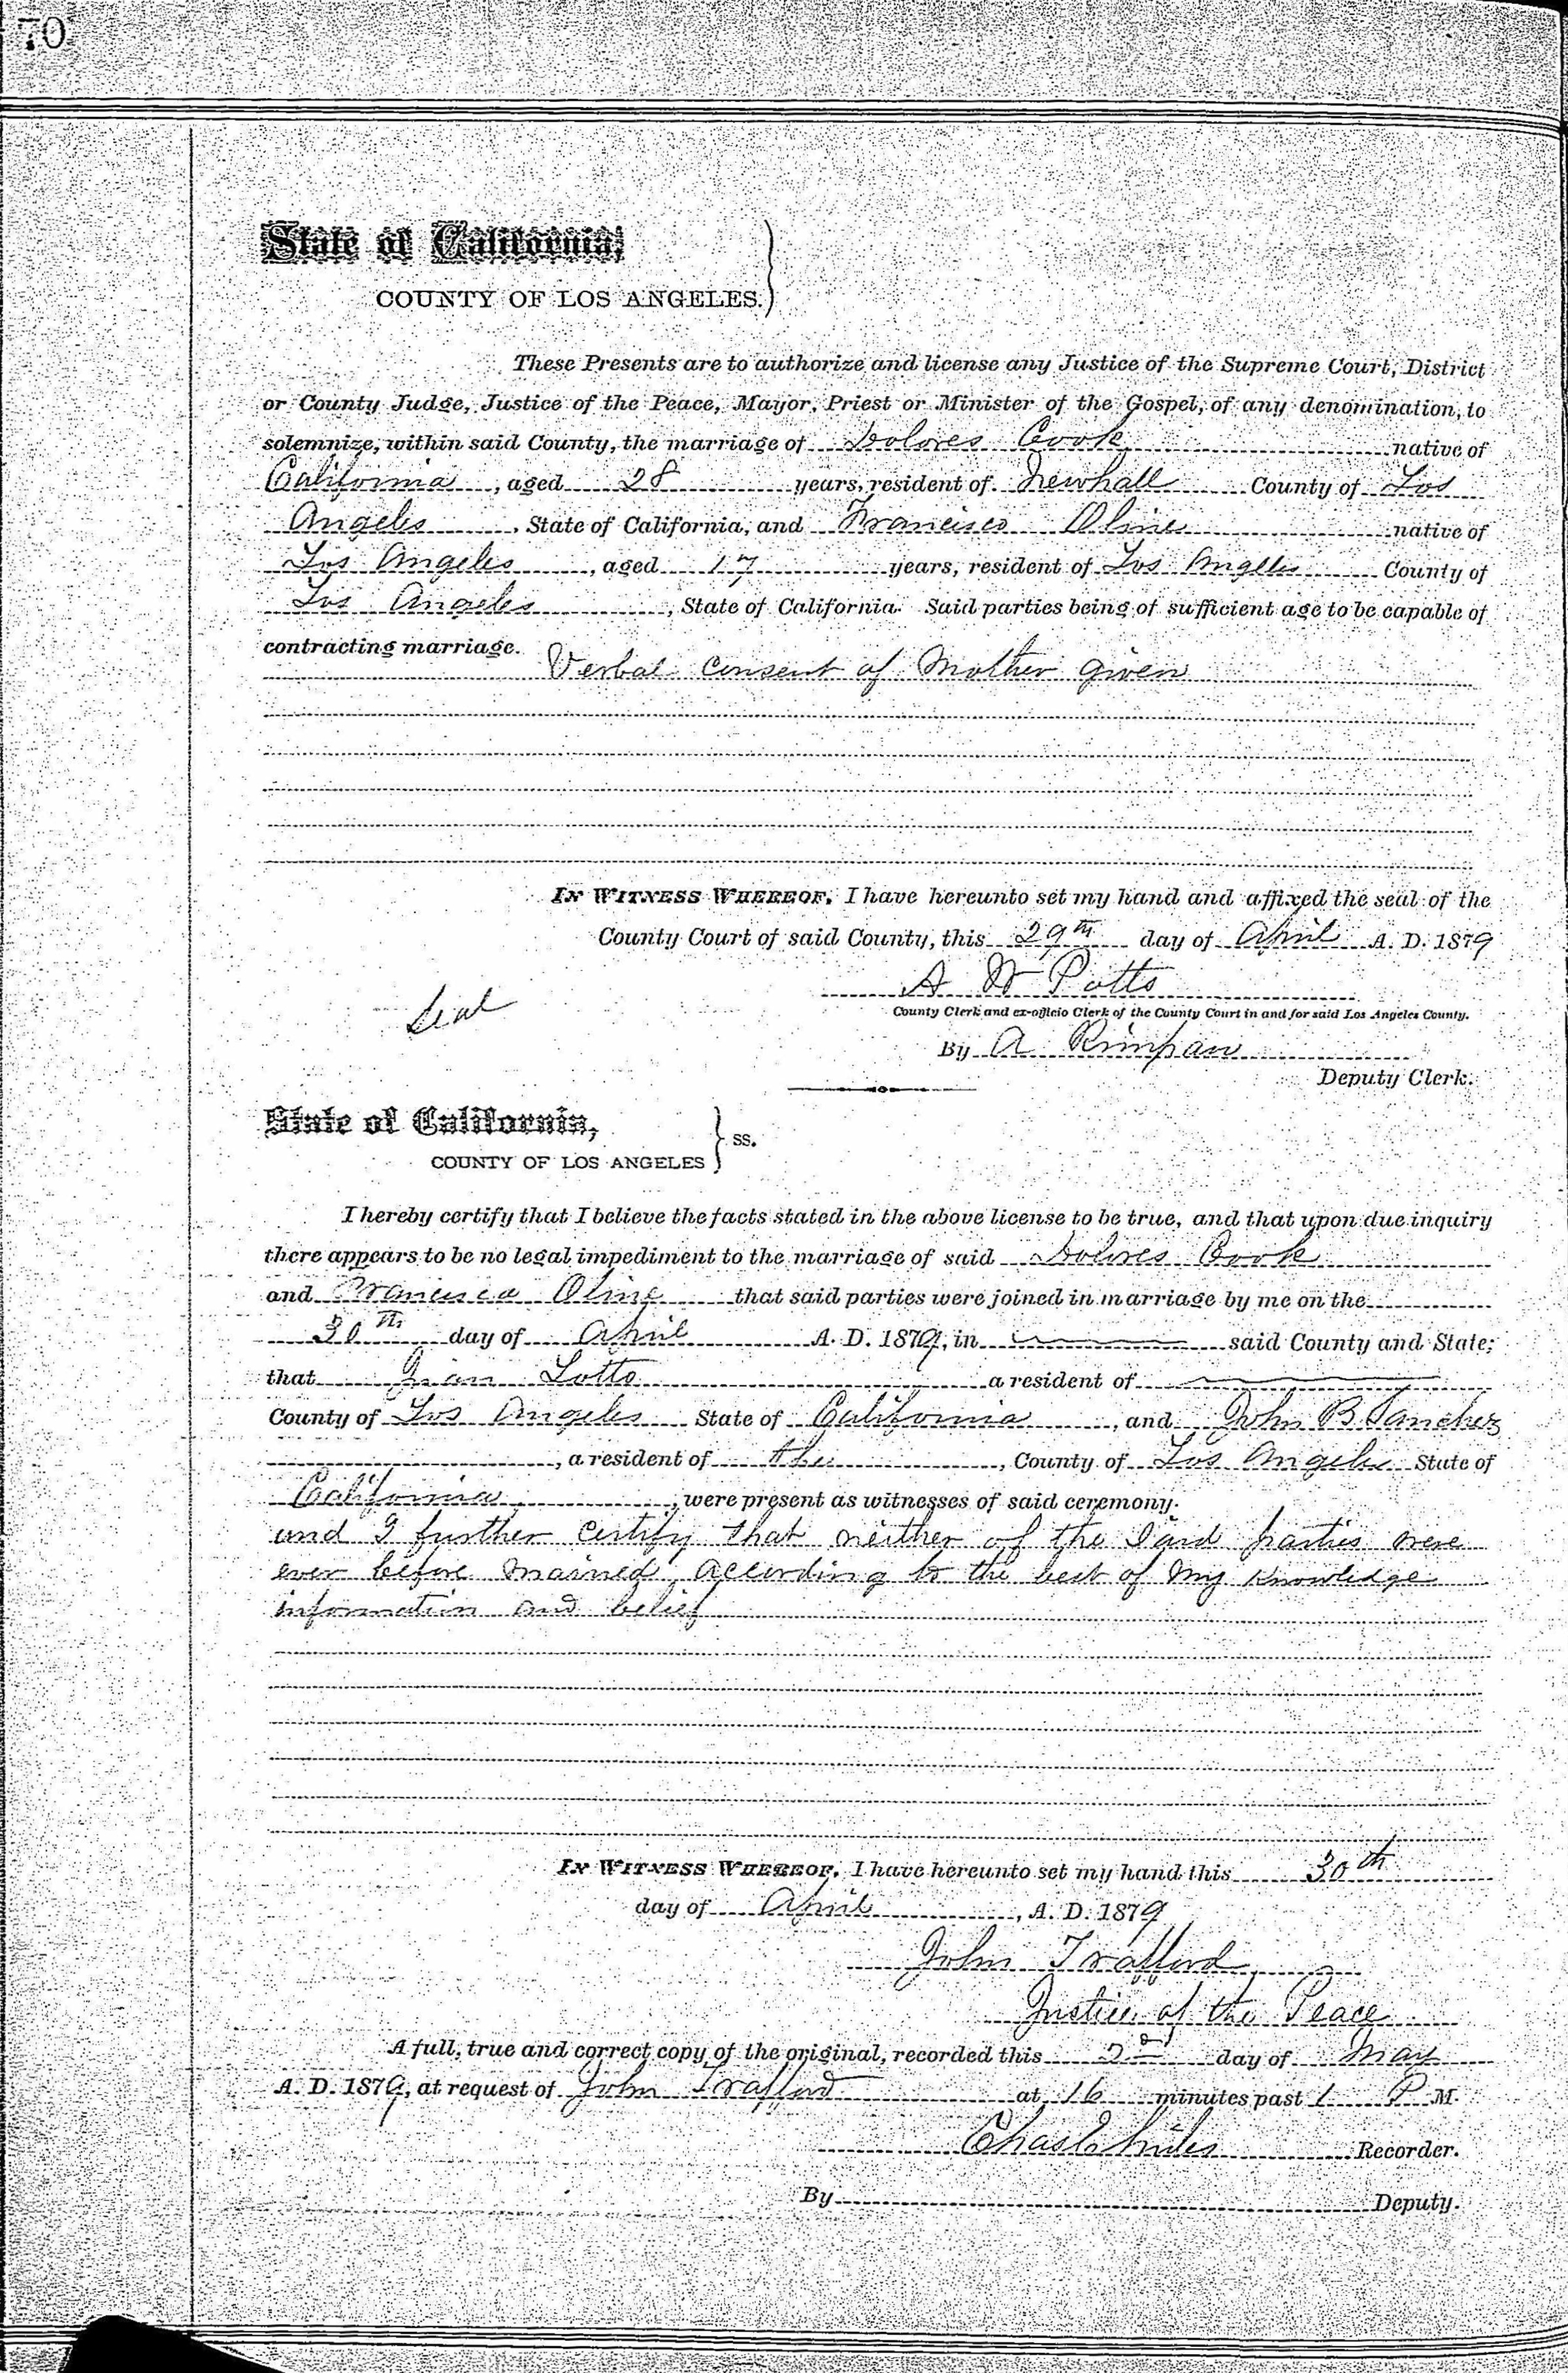 70
State of California,
COUNTY OF LOS ANGELES.
These Presents are to authorize and license any Justice of the Supreme Court, District
or County Judge, Justice of the Peace, Mayor, Priest or Minister of the Gospel, of any denomination, to
solemnize, within said County, the marriage of Dolores Cook native of
California, aged 28 years, resident of Newhall County of Los
Angeles, State of California, and Francisca Oline native of
Los Angeles, aged 17 years, resident of Los Angeles County of
Los Angeles, State of California. Said parties being of sufficient age to be capable of
contracting marriage.
Verbal consent of Mother given
IN WITNESS WHEREOF, I have hereunto set my hand and affixed the seal of the
County Court of said County, this 29th day of April A. D. 1879
A W Potts
Seal
County Clerk and ex-officio Clerk of the County Court in and for said Los Angeles County.
By A Rimpau
Deputy Clerk.
State of California,
ss.
COUNTY OF LOS ANGELES
I hereby certify that I believe the facts stated in the above license to be true, and that upon due inquiry
there appears to be no legal impediment to the marriage of said Dolores Cook
and Francisca Oline that said parties were joined in marriage by me on the
30th day of April A. D. 1879, in said County and State;
that Lotto a resident of
County of Los Angeles State of California, and John B Sanchez
, a resident of the, County of Los Angeles State of
California, were present as witnesses of said ceremony.
and I further certify that neither of the said parties were
ever before married, according to the best of my knowledge
information and belief
IN WITNESS WHEREOF, I have hereunto set my hand this 30th
day of April, A. D. 1879
John Trafford
Justice of the Peace
A full, true and correct copy of the original, recorded this 2d day of May
A. D. 1879, at request of John Trafford at 16 minutes past 1 P M.
Chas E Miles Recorder.
By Deputy.